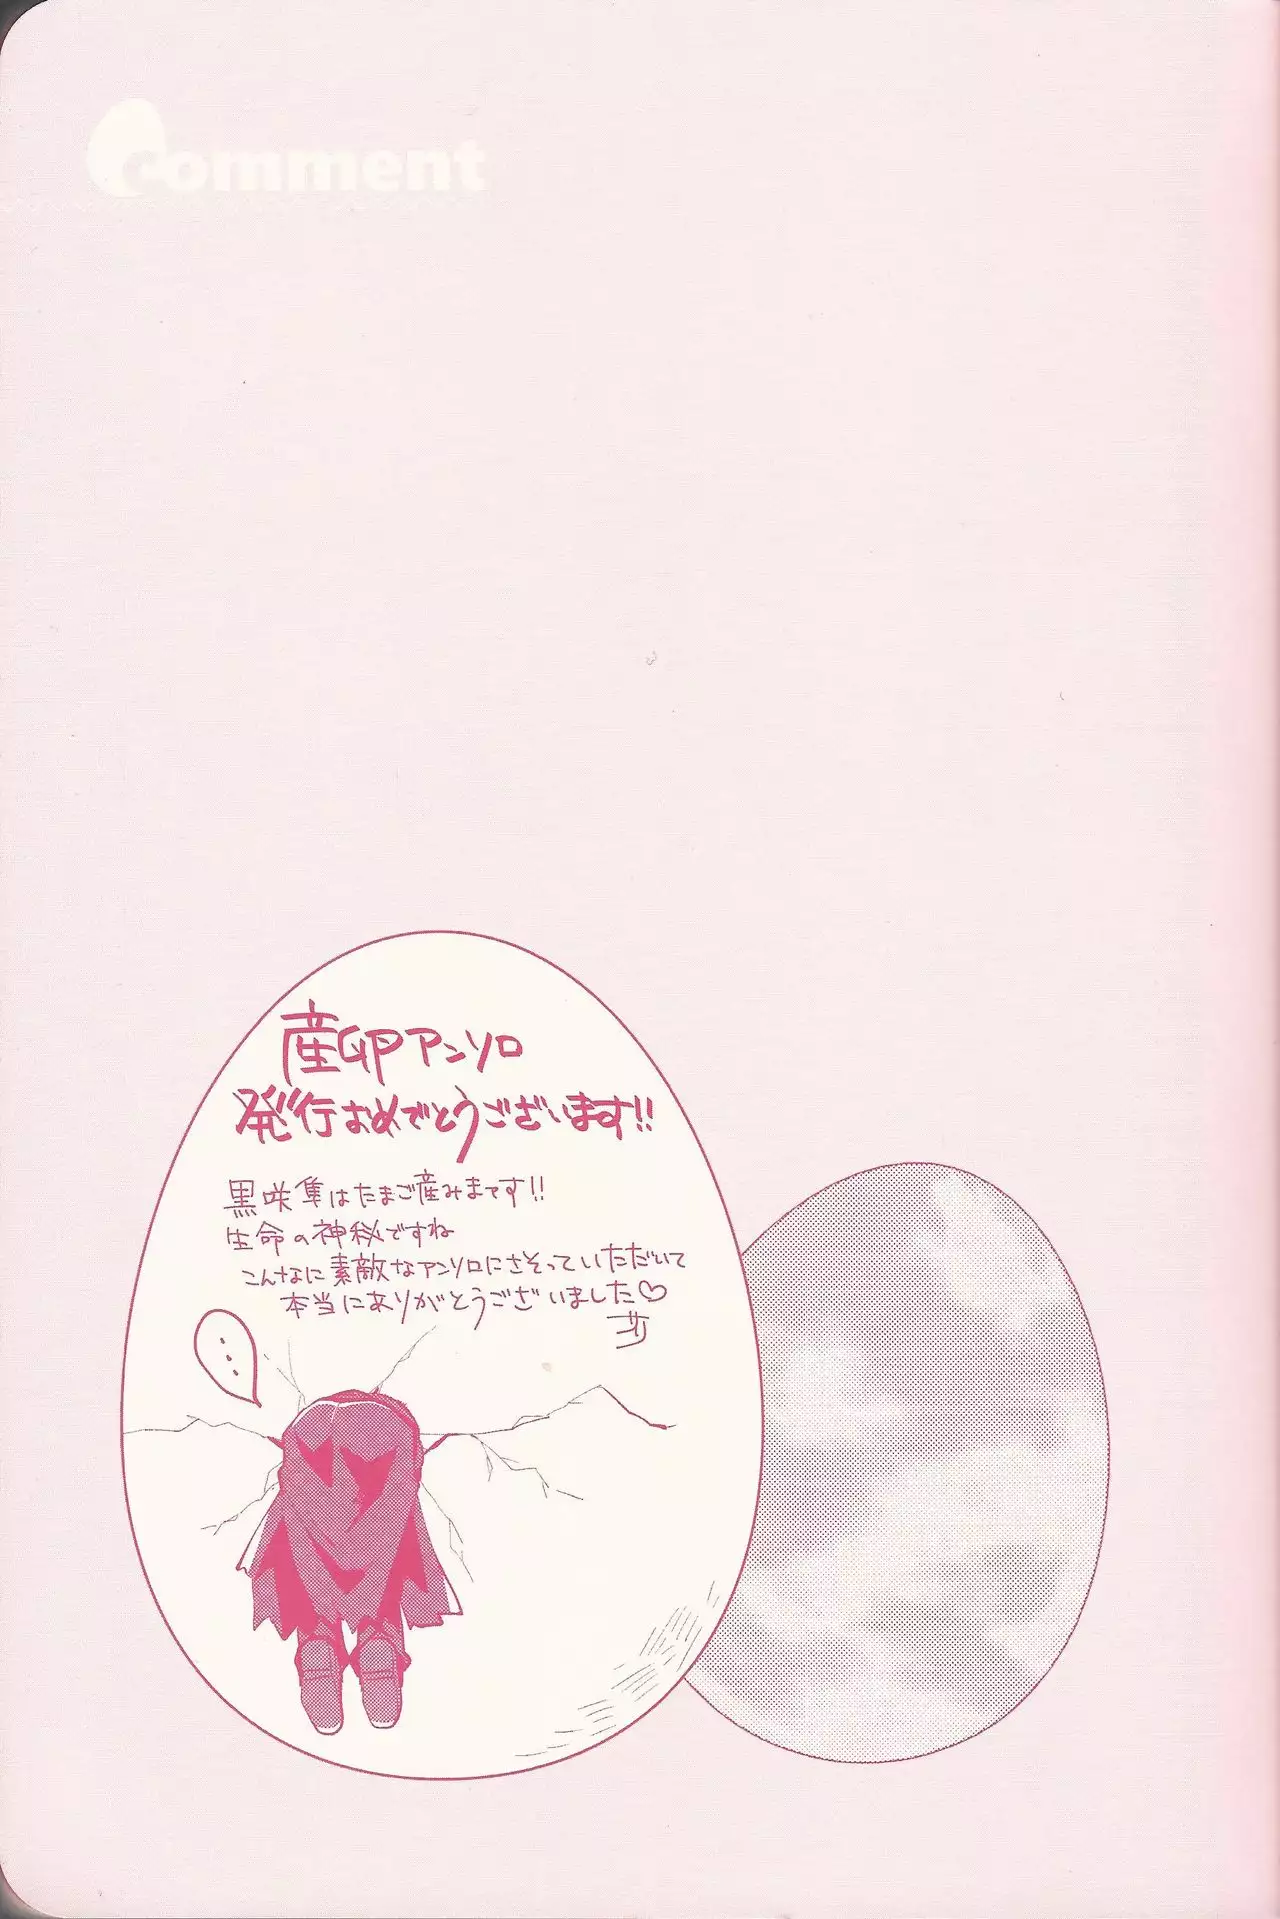 comment
産卵アンソロ
発行おめでとうございます!!
黒咲隼はたまご産みまです!!
生命の神秘ですね
こんなに素敵なアンソロにさそっていただいて
本当にありがとうございました♡
ゴリ
...